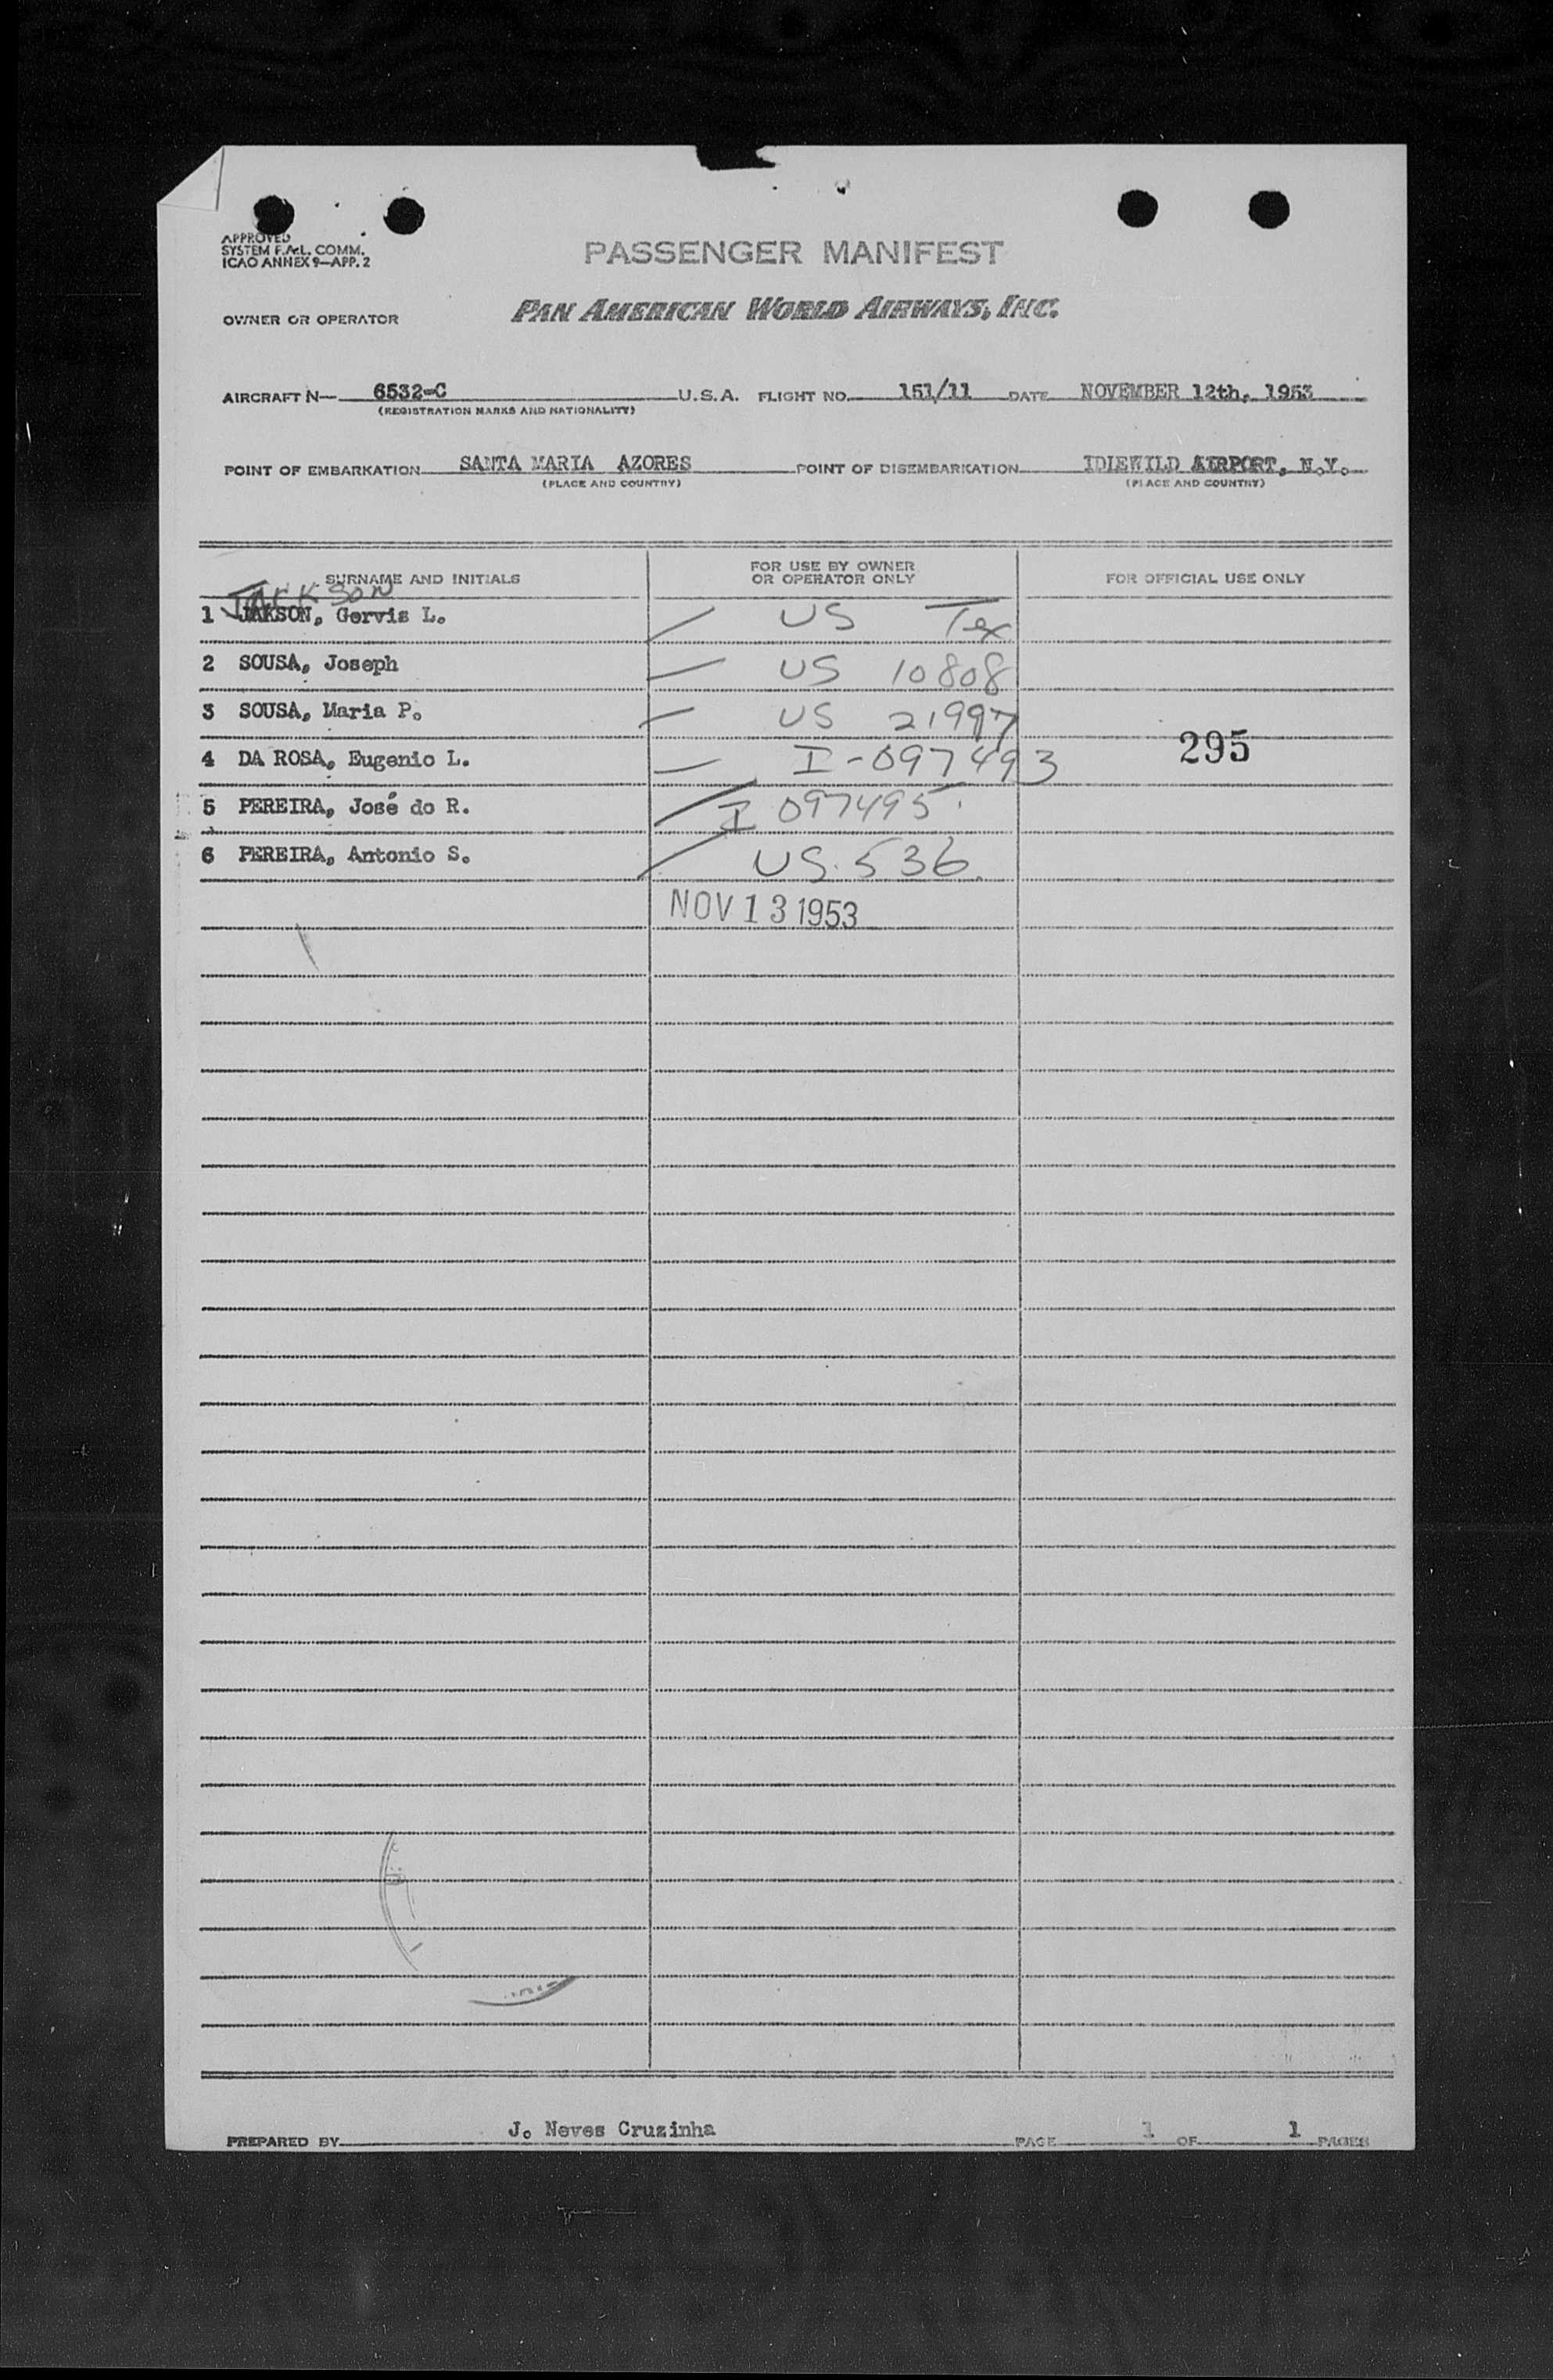 APPROVED
SYSTEM F.A.L. COMM.
ICAO ANNEX 9—APP. 2
PASSENGER MANIFEST
OWNER OR OPERATOR PAN AMERICAN WORLD AIRWAYS, INC.
AIRCRAFT N— 6532-C U.S.A. FLIGHT NO. 151/11 DATE NOVEMBER 12th, 1953
(REGISTRATION MARKS AND NATIONALITY)
POINT OF EMBARKATION SANTA MARIA AZORES POINT OF DISEMBARKATION IDLEWILD AIRPORT, N.Y.
(PLACE AND COUNTRY) (PLACE AND COUNTRY)
SURNAME AND INITIALS FOR USE BY OWNER OR OPERATOR ONLY FOR OFFICIAL USE ONLY
JACKSON
1 JAKSON, Gervis L. US Tex
2 SOUSA, Joseph US 10808
3 SOUSA, Maria P. US 21997
4 DA ROSA, Eugenio L. I-097493 295
5 PEREIRA, José do R. I 097495
6 PEREIRA, Antonio S. US. 536.
NOV 13 1953
PREPARED BY J. Neves Cruzinha PAGE 1 OF 1 PAGES